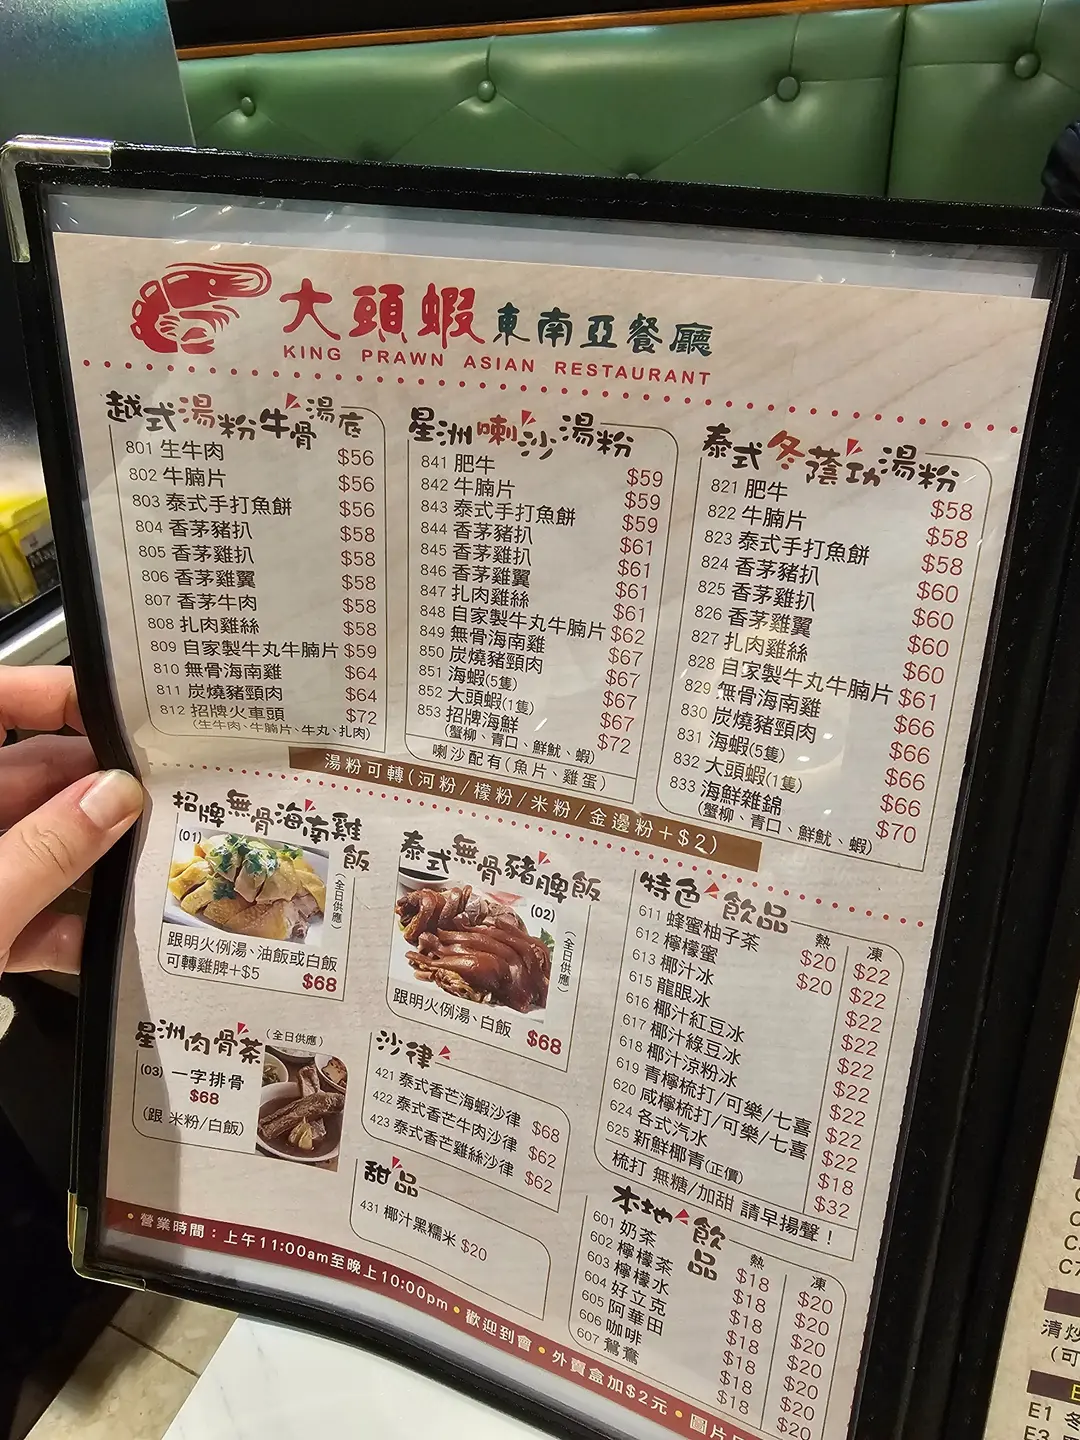 大頭蝦東南亞餐廳
KING PRAWN ASIAN RESTAURANT
越式湯粉牛骨湯底
801 生牛肉 $56
802 牛腩片 $56
803 泰式手打魚餅 $56
804 香茅豬扒 $58
805 香茅雞扒 $58
806 香茅雞翼 $58
807 香茅牛肉 $58
808 扎肉雞絲 $58
809 自家製牛丸牛腩片 $59
810 無骨海南雞 $64
811 炭燒豬頸肉 $64
812 招牌火車頭 $72
(生牛肉、牛腩片、牛丸、扎肉)
星洲喇沙湯粉
841 肥牛 $59
842 牛腩片 $59
843 泰式手打魚餅 $59
844 香茅豬扒 $61
845 香茅雞扒 $61
846 香茅雞翼 $61
847 扎肉雞絲 $61
848 自家製牛丸牛腩片 $62
849 無骨海南雞 $67
850 炭燒豬頸肉 $67
851 海蝦(5隻) $67
852 大頭蝦(1隻) $67
853 招牌海鮮 $72
(蟹柳、青口、鮮魷、蝦)
喇沙配有(魚片、雞蛋)
泰式冬蔭功湯粉
821 肥牛 $58
822 牛腩片 $58
823 泰式手打魚餅 $58
824 香茅豬扒 $60
825 香茅雞扒 $60
826 香茅雞翼 $60
827 扎肉雞絲 $60
828 自家製牛丸牛腩片 $61
829 無骨海南雞 $66
830 炭燒豬頸肉 $66
831 海蝦(5隻) $66
832 大頭蝦(1隻) $66
833 海鮮雜錦 $70
(蟹柳、青口、鮮魷、蝦)
湯粉可轉(河粉/檬粉/米粉/金邊粉+$2)
招牌無骨海南雞飯
(01)
(全日供應)
跟明火例湯、油飯或白飯
可轉雞脾+$5 $68
泰式無骨豬脾飯
(02)
(全日供應)
跟明火例湯、白飯 $68
星洲肉骨茶(全日供應)
(03) 一字排骨
$68
(跟 米粉/白飯)
沙律
421 泰式香芒海蝦沙律 $68
422 泰式香芒牛肉沙律 $62
423 泰式香芒雞絲沙律 $62
甜品
431 椰汁黑糯米 $20
特色飲品
熱 凍
611 蜂蜜柚子茶 $20 $22
612 檸檬蜜 $20 $22
613 椰汁冰 $22
615 龍眼冰 $22
616 椰汁紅豆冰 $22
617 椰汁綠豆冰 $22
618 椰汁涼粉冰 $22
619 青檸梳打/可樂/七喜 $22
620 咸檸梳打/可樂/七喜 $22
624 各式汽水 $18
625 新鮮椰青(正價) $32
梳打 無糖/加甜 請早揚聲！
本地飲品
熱 凍
601 奶茶 $18 $20
602 檸檬茶 $18 $20
603 檸檬水 $18 $20
604 好立克 $18 $20
605 阿華田 $18 $20
606 咖啡 $18 $20
607 鴛鴦 $18 $20
•營業時間：上午11:00am至晚上10:00pm•歡迎到會•外賣盒加$2元•圖片
清炒
(可
E1 冬
E3